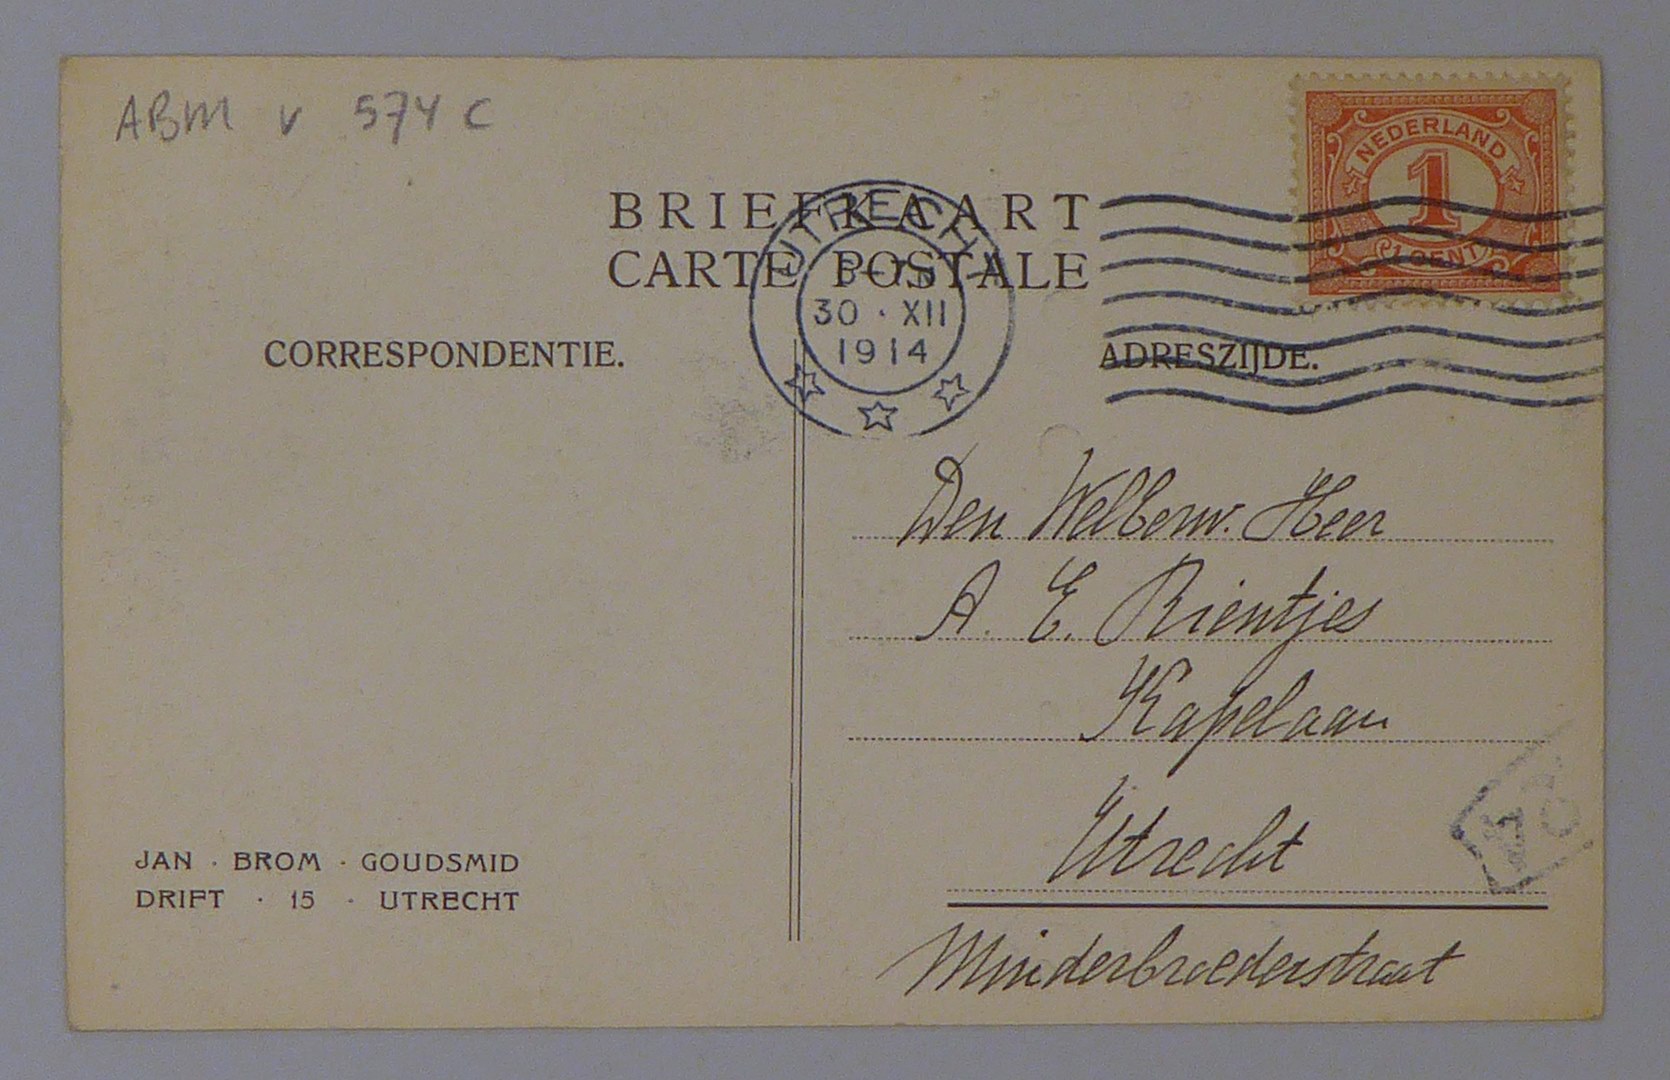 ABM v 574 C
NEDERLAND
1
1 CENT
BRIEFKAART
CARTE POSTALE
UTRECHT
30 · XII
1914
CORRESPONDENTIE.
ADRESZIJDE.
Den Weleerw. Heer
A. E. Rientjes
Kapelaan
Utrecht
Minderbroederstraat
JAN · BROM · GOUDSMID
DRIFT · 15 · UTRECHT